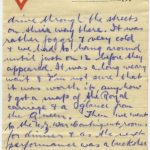 drive through the streets
on their way there. It was
rather foggy & very cold
& we had to hang around
until just on 12 before they
appeared. It was a long weary
wait & I'm not sure that
it was worth it anyhow
I got a map of the Royal
carriage & a glance from
the Queen. Then we went
to the
for dinner & as the next
performance was a